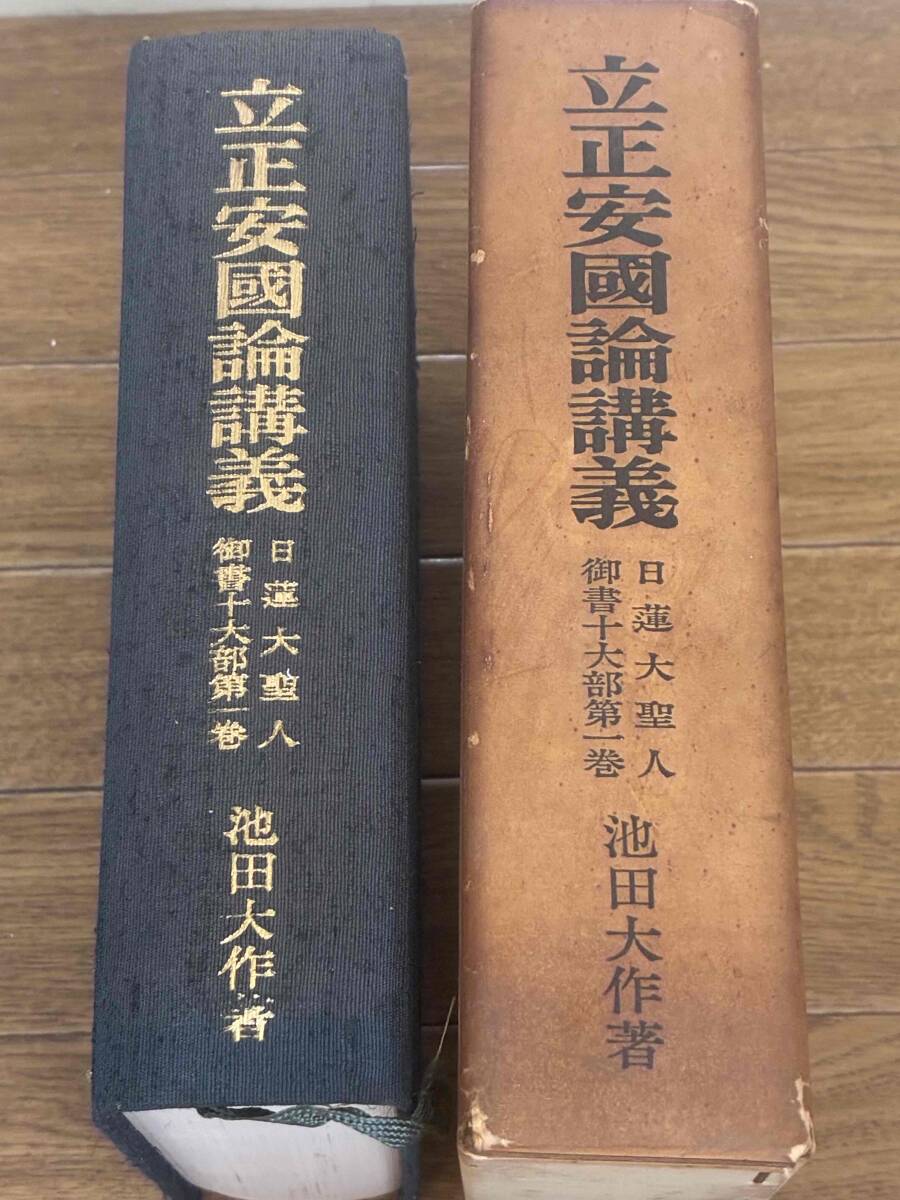 立正安國論講義
日蓮大聖人
御書十大部第一巻
池田大作著
立正安國論講義
日蓮大聖人
御書十大部第一巻
池田大作著